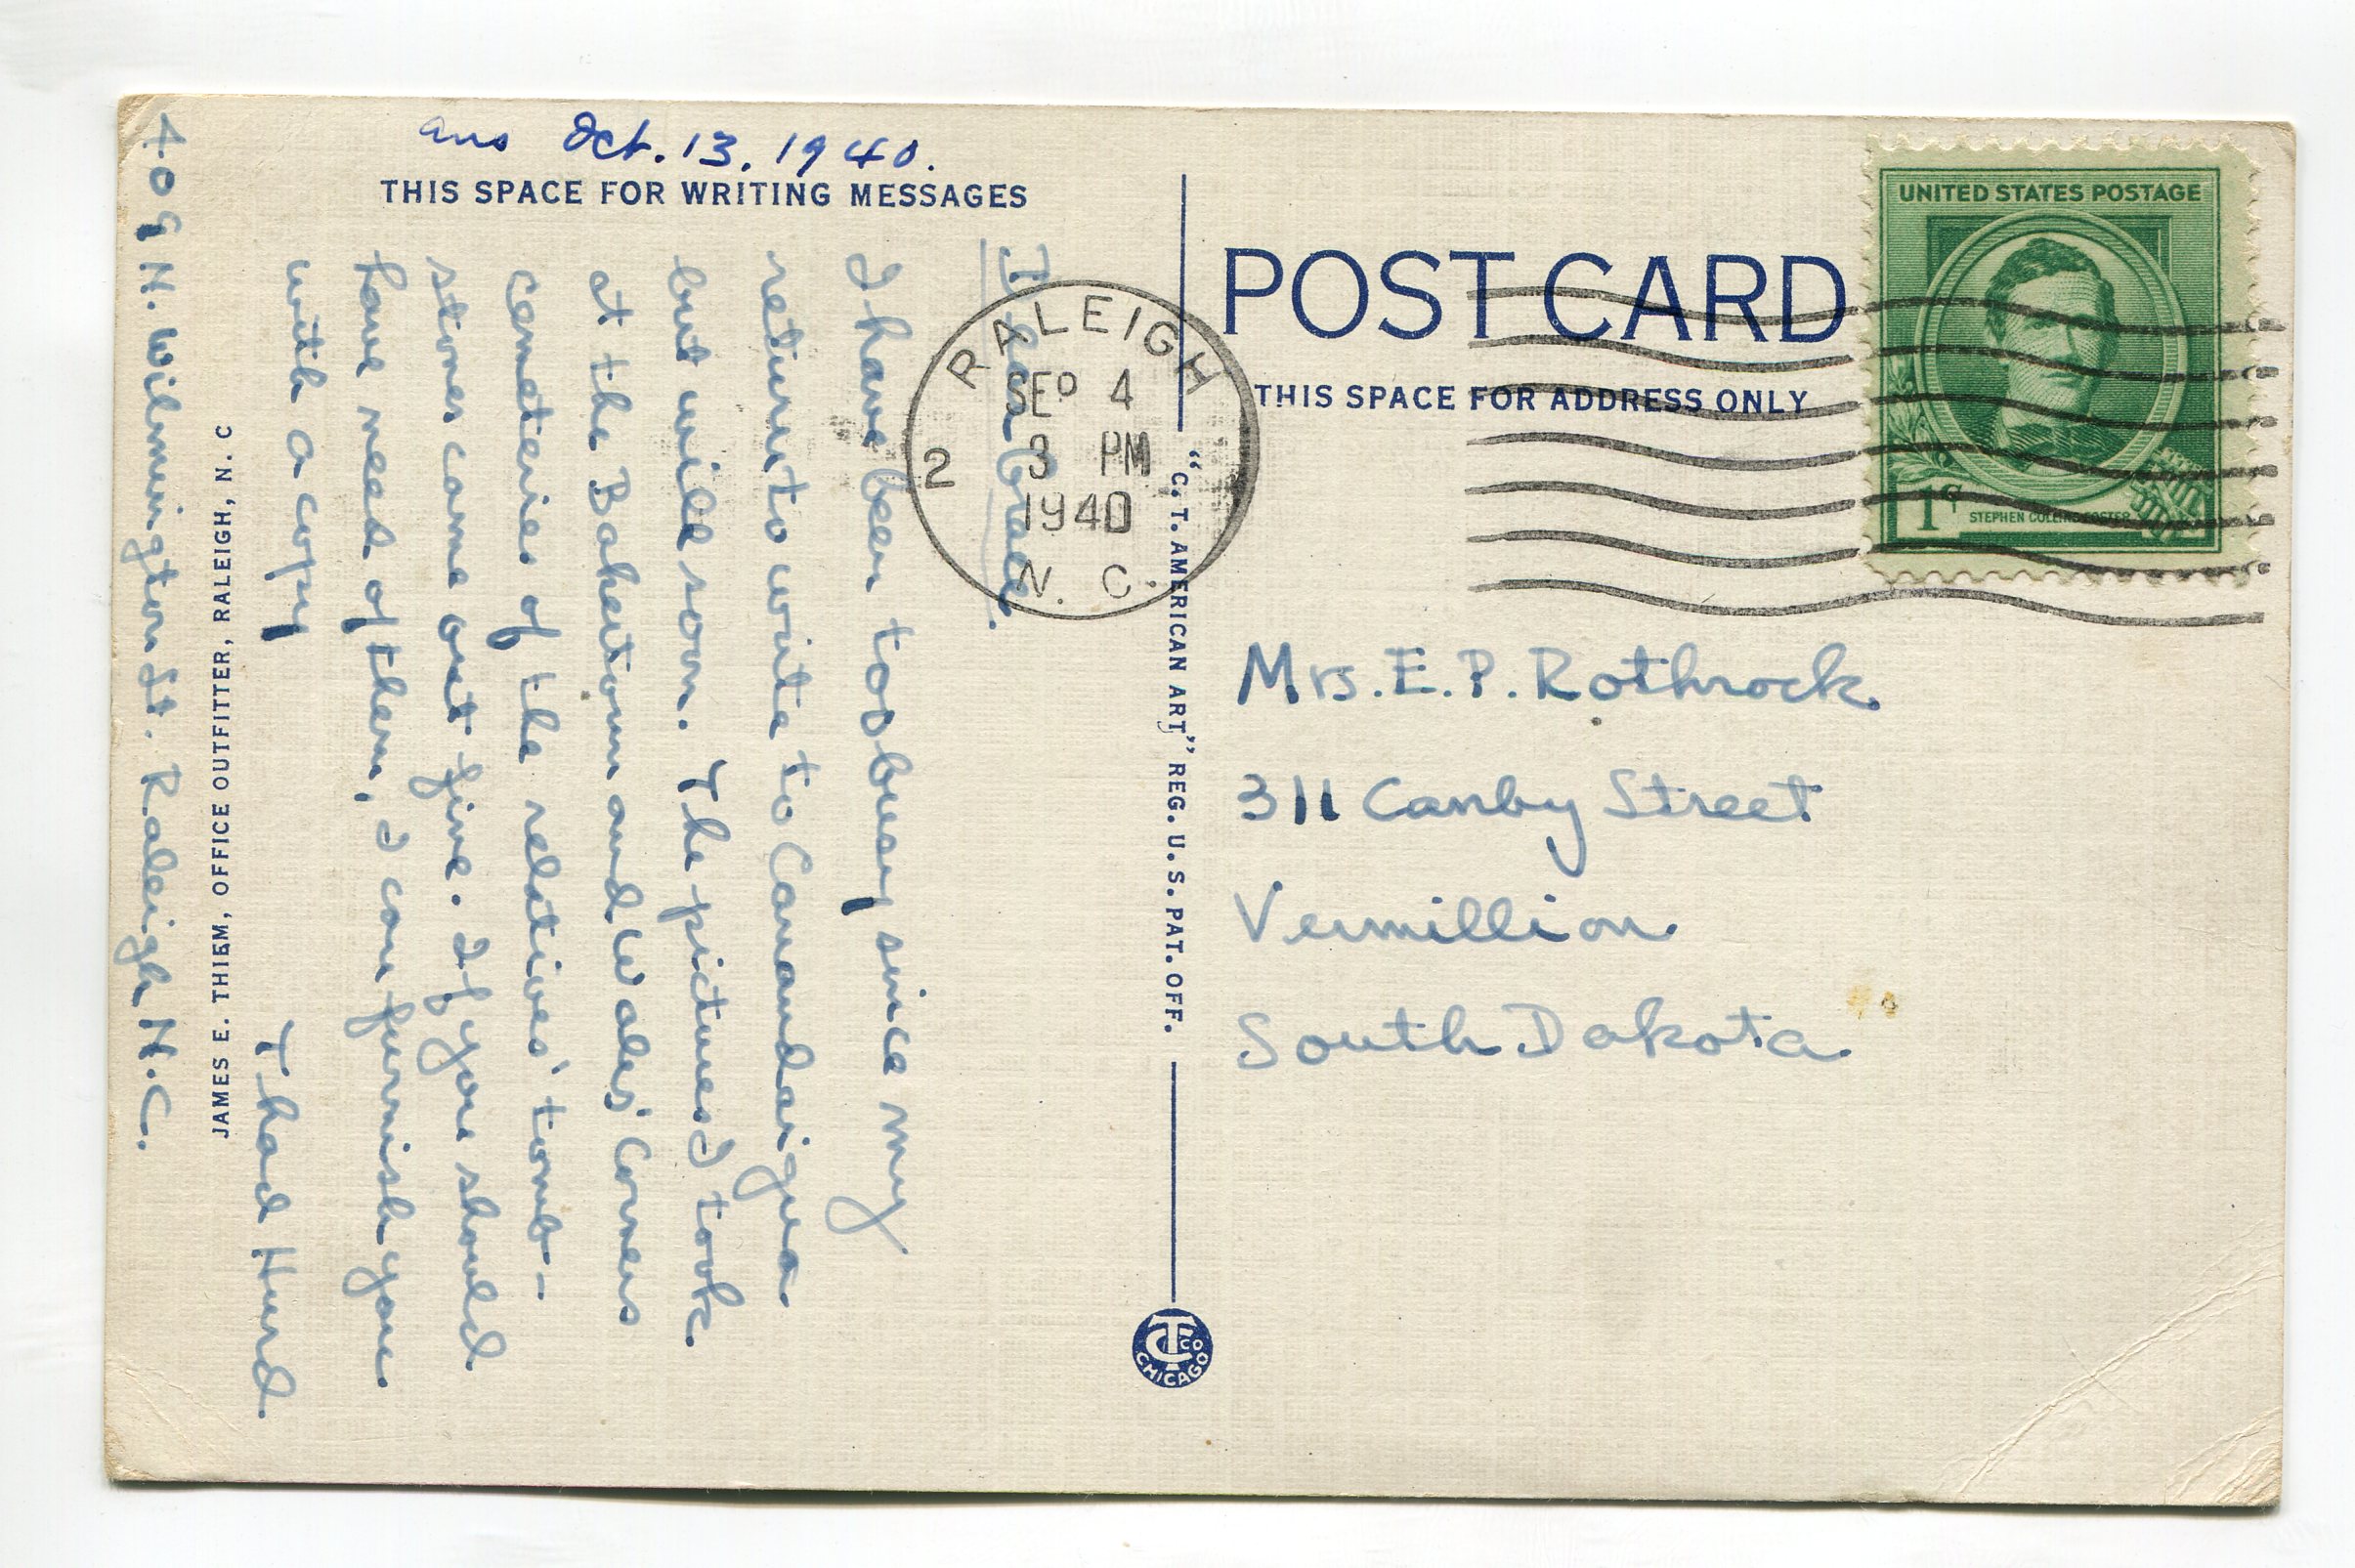 ans Oct. 13. 1940.
THIS SPACE FOR WRITING MESSAGES
Dear Grace.
I have been too busy since my
return to write to Canandaigua
but will soon. The pictures I took
at the Baketown and Wales' Corners
cemeteries of the relatives' tomb-
stones came out fine. If you should
have need of them, I can furnish you
with a copy
Thad Hurd
JAMES E. THIEM, OFFICE OUTFITTER, RALEIGH, N. C
409 N. Wilmington St. Raleigh N.C.
RALEIGH
SEP 4
PM
1940
N. C.
2
"C. T. AMERICAN ART" REG. U. S. PAT. OFF.
CT CO
CHICAGO
POST CARD
THIS SPACE FOR ADDRESS ONLY
UNITED STATES POSTAGE
1¢
STEPHEN COLLINS FOSTER
Mrs. E. P. Rothrock
311 Canby Street
Vermillion
South Dakota